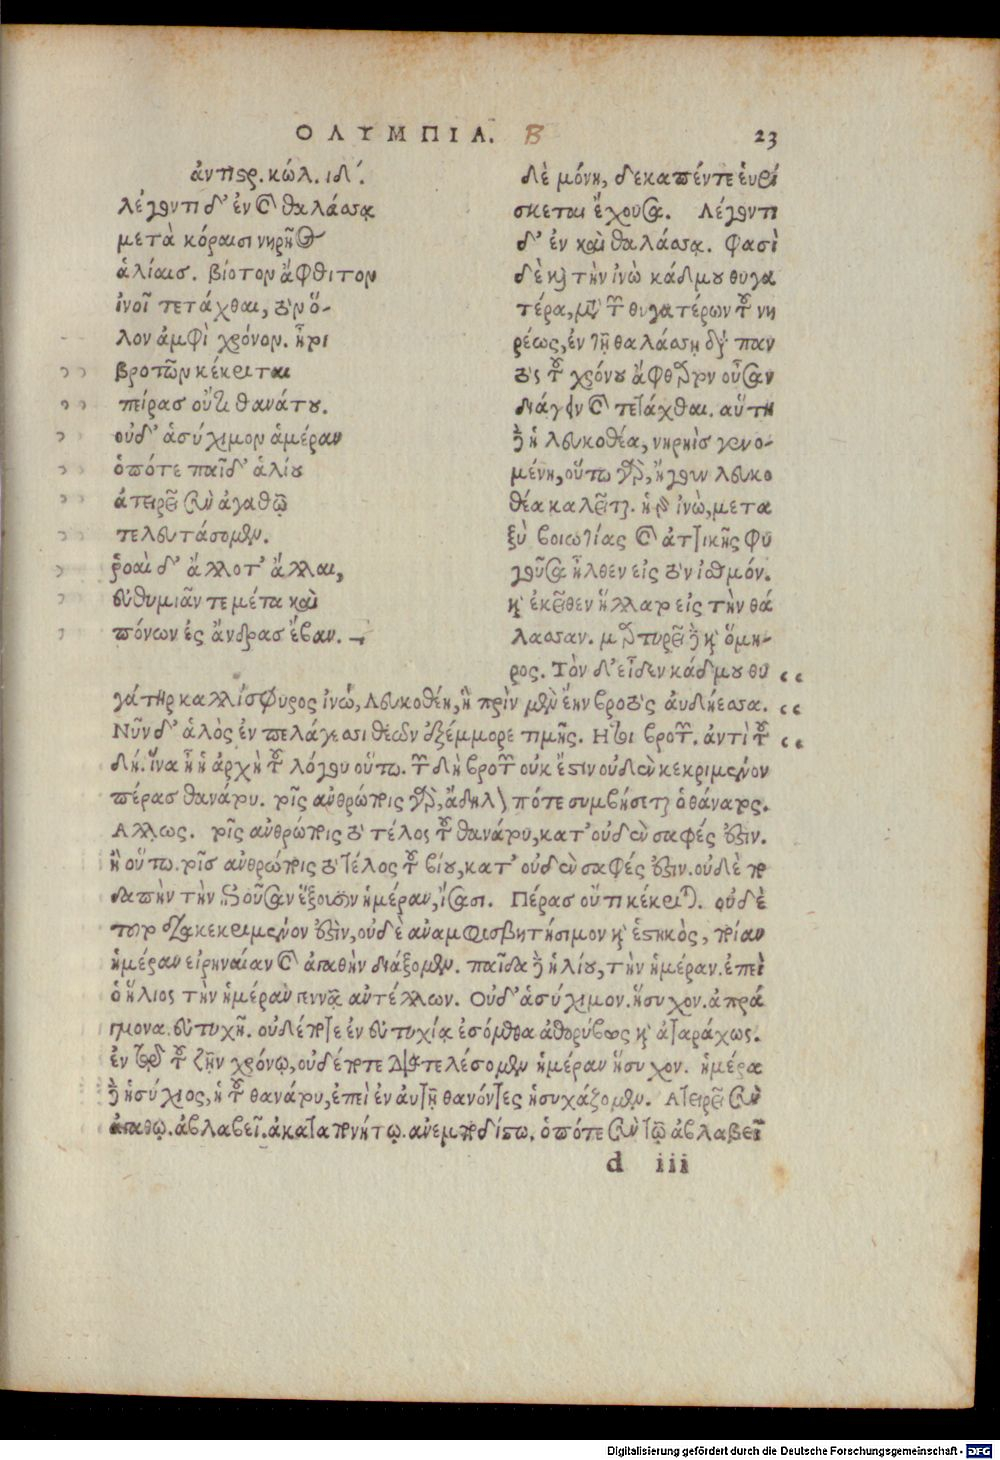 ΟΛΥΜΠΙΑ. Β 23
ἀντιστρ. κώλ. ιδ΄.
λέγοντι δ' ἐν καὶ θαλάσσᾳ
μετὰ κόραισι νηρῆος
ἁλίαισ. βίοτον ἄφθιτον
ἰνοῖ τετάχθαι, τὸν ὅ-
λον ἀμφὶ χρόνον. ἤτοι
βροτῶν κέκριται
πείρασ οὔτι θανάτου.
οὐδ' ἀσύχιμον ἁμέραν
ὁπότε παῖδ' ἁλίου
ἀτειρεῖ σὺν ἀγαθῷ
τελευτάσομεν.
ῥοαὶ δ' ἄλλοτ' ἄλλαι,
εὐθυμιᾶν τε μέτα καὶ
πόνων ἐς ἄνδρασ ἔβαν.
δὲ μόνη, δεκαπέντε εὑρί
σκεται ἔχουσα. Λέγοντι
δ' ἐν καὶ θαλάσσᾳ. Φασὶ
δὲ καὶ τὴν ἰνὼ κάδμου θυγα
τέρα, μετὰ τῶν θυγατέρων τοῦ νη
ρέως, ἐν τῇ θαλάσσῃ διὰ παν
τὸς τοῦ χρόνου ἄφθαρτον οὖσαν
διάγειν καὶ τετάχθαι. αὕτη
ἐστὶν ἡ λευκοθέα, νηρηὶσ γενο-
μένη, οὕτω γὰρ, ἤγουν λευκο
θέα καλεῖται. ἡ γὰρ ἰνὼ, μετα
ξὺ βοιωτίας καὶ ἀττικῆς φυ
γοῦσα ἦλθεν εἰς τὸν ἰσθμόν.
καὶ ἐκεῖθεν ἥλλατο εἰς τὴν θά
λασσαν. μαρτυρεῖ δὲ καὶ ὅμη-
ρος. Τὸν δ' εἶδεν κάδμου θυ
γάτηρ καλλίσφυρος ἰνώ, λευκοθέη, ἣ πρὶν μὲν ἔην βροτὸς αὐδήεσσα.
Νῦν δ' ἁλὸς ἐν πελάγεσσι θεῶν ἐξέμμορε τιμῆς. Ητοι βροτῶν. ἀντὶ τοῦ
δή. ἵνα ᾖ ἡ ἀρχὴ τοῦ λόγου οὕτω. τῶν δὴ βροτῶν οὐκ ἔστιν οὐδὲν κεκριμένον
πέρασ θανάτου. τοῖς ἀνθρώποις γὰρ, ἄδηλον πότε συμβήσεται ὁ θάνατος.
Αλλως. τοῖς ἀνθρώποις τὸ τέλος τοῦ θανάτου, κατ' οὐδὲν σαφές ἐστιν.
ἢ οὕτω. τοῖσ ἀνθρώποις τὸ τέλος τοῦ βίου, κατ' οὐδὲν σαφές ἐστιν. οὐδὲ πο
δαπὴν τὴν ἐσοῦσαν ἕξουσιν ἡμέραν, ἴσασι. Πέρασ οὔτι κέκριται. οὐδὲ
τοῦτο διακεκριμένον ἐστὶν, οὐδὲ ἀναμφισβητήσιμον καὶ ἑστηκὸς, ποίαν
ἡμέραν εἰρηναίαν καὶ ἀγαθὴν διάξομεν. παῖδα δὲ ἡλίου, τὴν ἡμέραν. ἐπεὶ
ὁ ἥλιος τὴν ἡμέραν γεννᾷ ἀντέλλων. Οὐδ' ἀσύχιμον. ἥσυχον. ἀπρά
γμονα. εὐτυχῆ. οὐδέποτε ἐν εὐτυχίᾳ ἐσόμεθα ἀθορύβως καὶ ἀταράχως.
ἐν τῷ τοῦ ζῆν χρόνῳ, οὐδέποτε διατελέσομεν ἡμέραν ἥσυχον. ἡμέρα
δὲ ἡσύχιος, ἡ τοῦ θανάτου, ἐπεὶ ἐν αὐτῇ θανόντες ἡσυχάζομεν. Ατειρεῖ σὺν
ἀγαθῷ. ἀβλαβεῖ. ἀκαταπονήτῳ. ἀνεμποδίστω. ὁπότε σὺν τῷ ἀβλαβεῖ
d iii
Digitalisierung gefördert durch die Deutsche Forschungsgemeinschaft - DFG